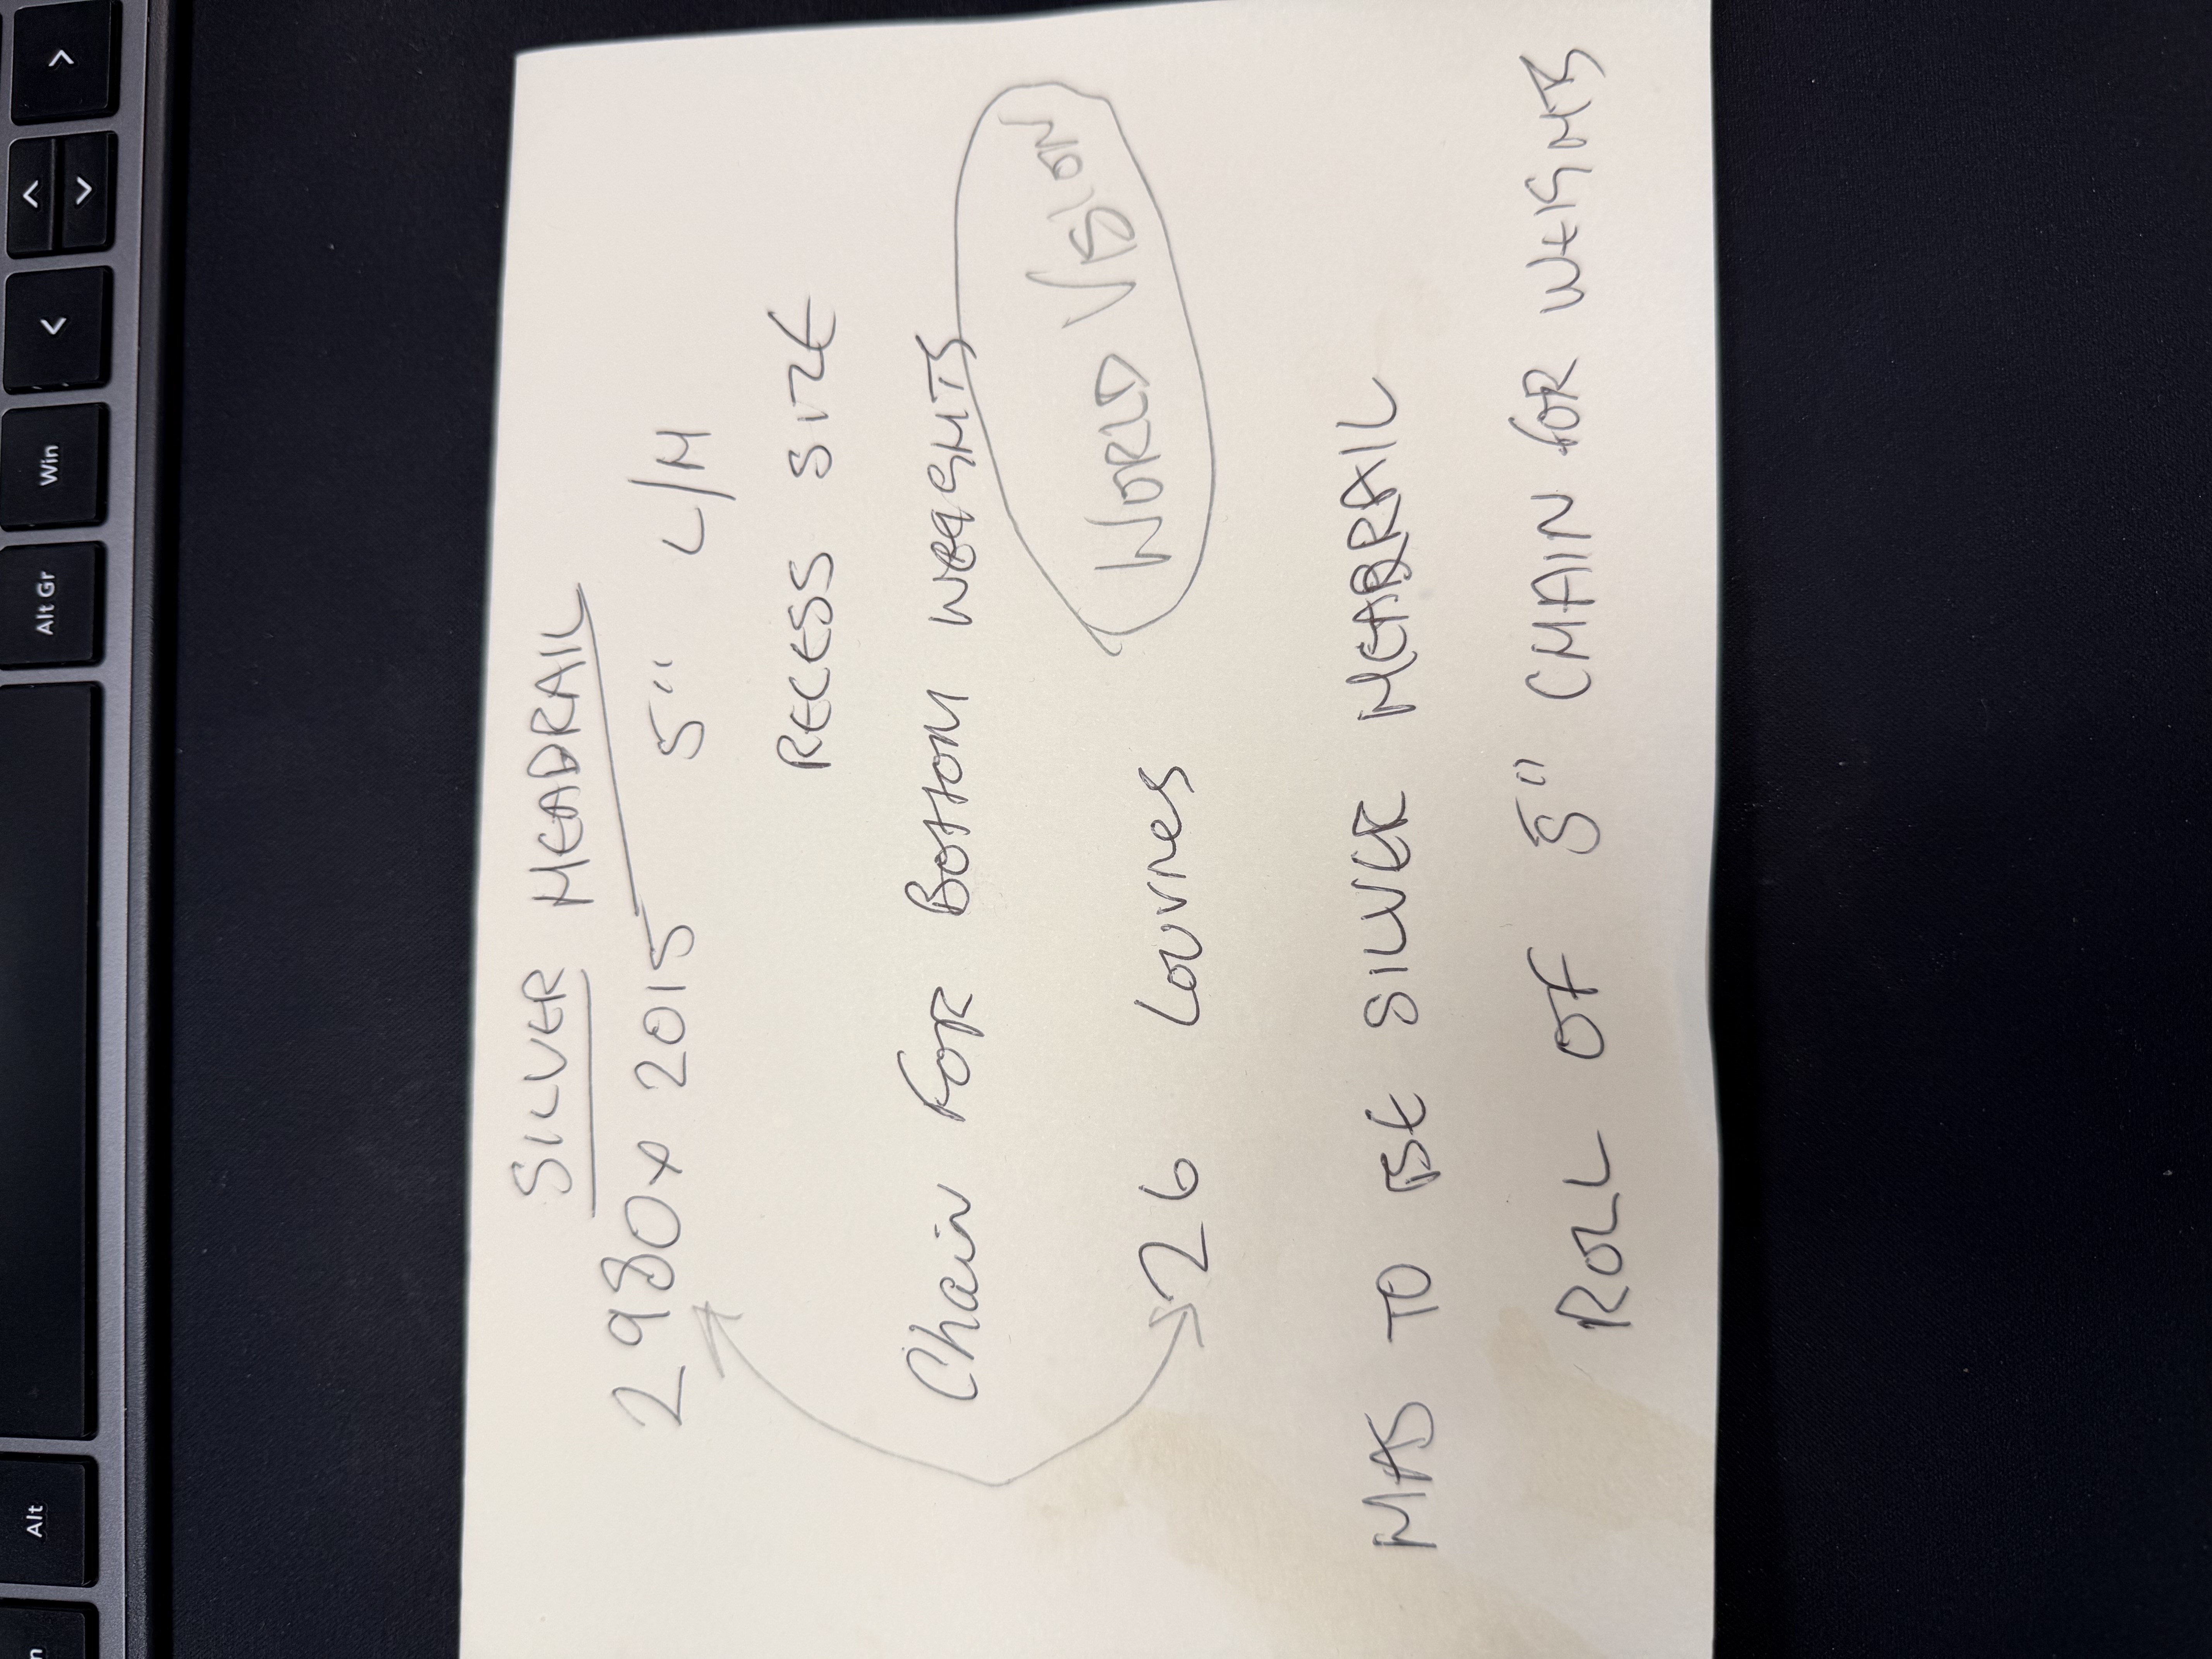 SILVER HEADRAIL
2980 x 2015 5" L/H
RECESS SIZE
Chain FOR BOTTOM WEIGHTS
WORLD VISION
26 Louvres
HAS TO BE SILVER HEADRAIL
ROLL OF 5" CHAIN FOR WEIGHTS
>
^
v
<
Win
Alt Gr
Alt